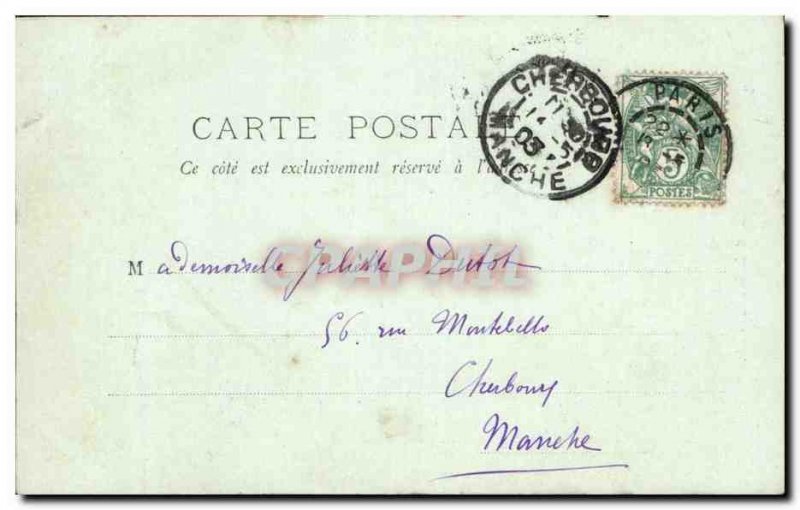 CARTE POSTALE
Ce côté est exclusivement réservé à l'
CHERBOURG
03
MANCHE
PARIS
5
POSTES
CPAPHIL
Mademoiselle Juliette Dutot
56 rue Montebello
Cherbourg
Manche